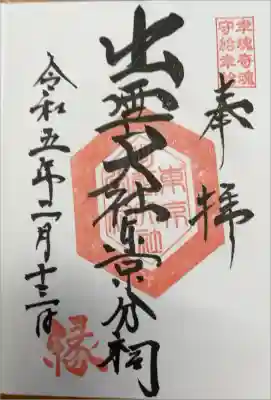 幸魂奇魂
守給幸給
奉拝
出雲大社東京分祠
令和五年二月十三日
縁